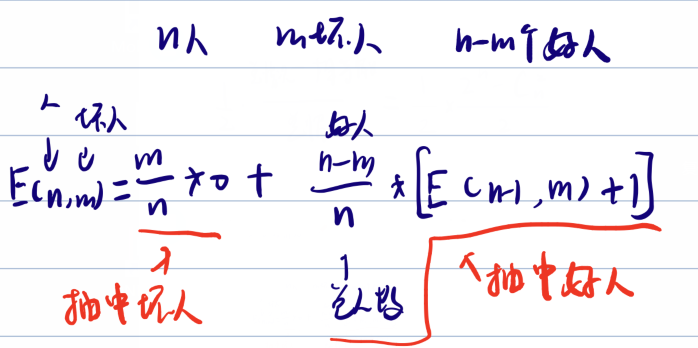 n人 m坏人 n-m个好人
人 坏人
好人
E(n,m) = m/n * 0 + n-m/n * [E(n-1,m)+1]
抽中坏人
总人数
抽中好人